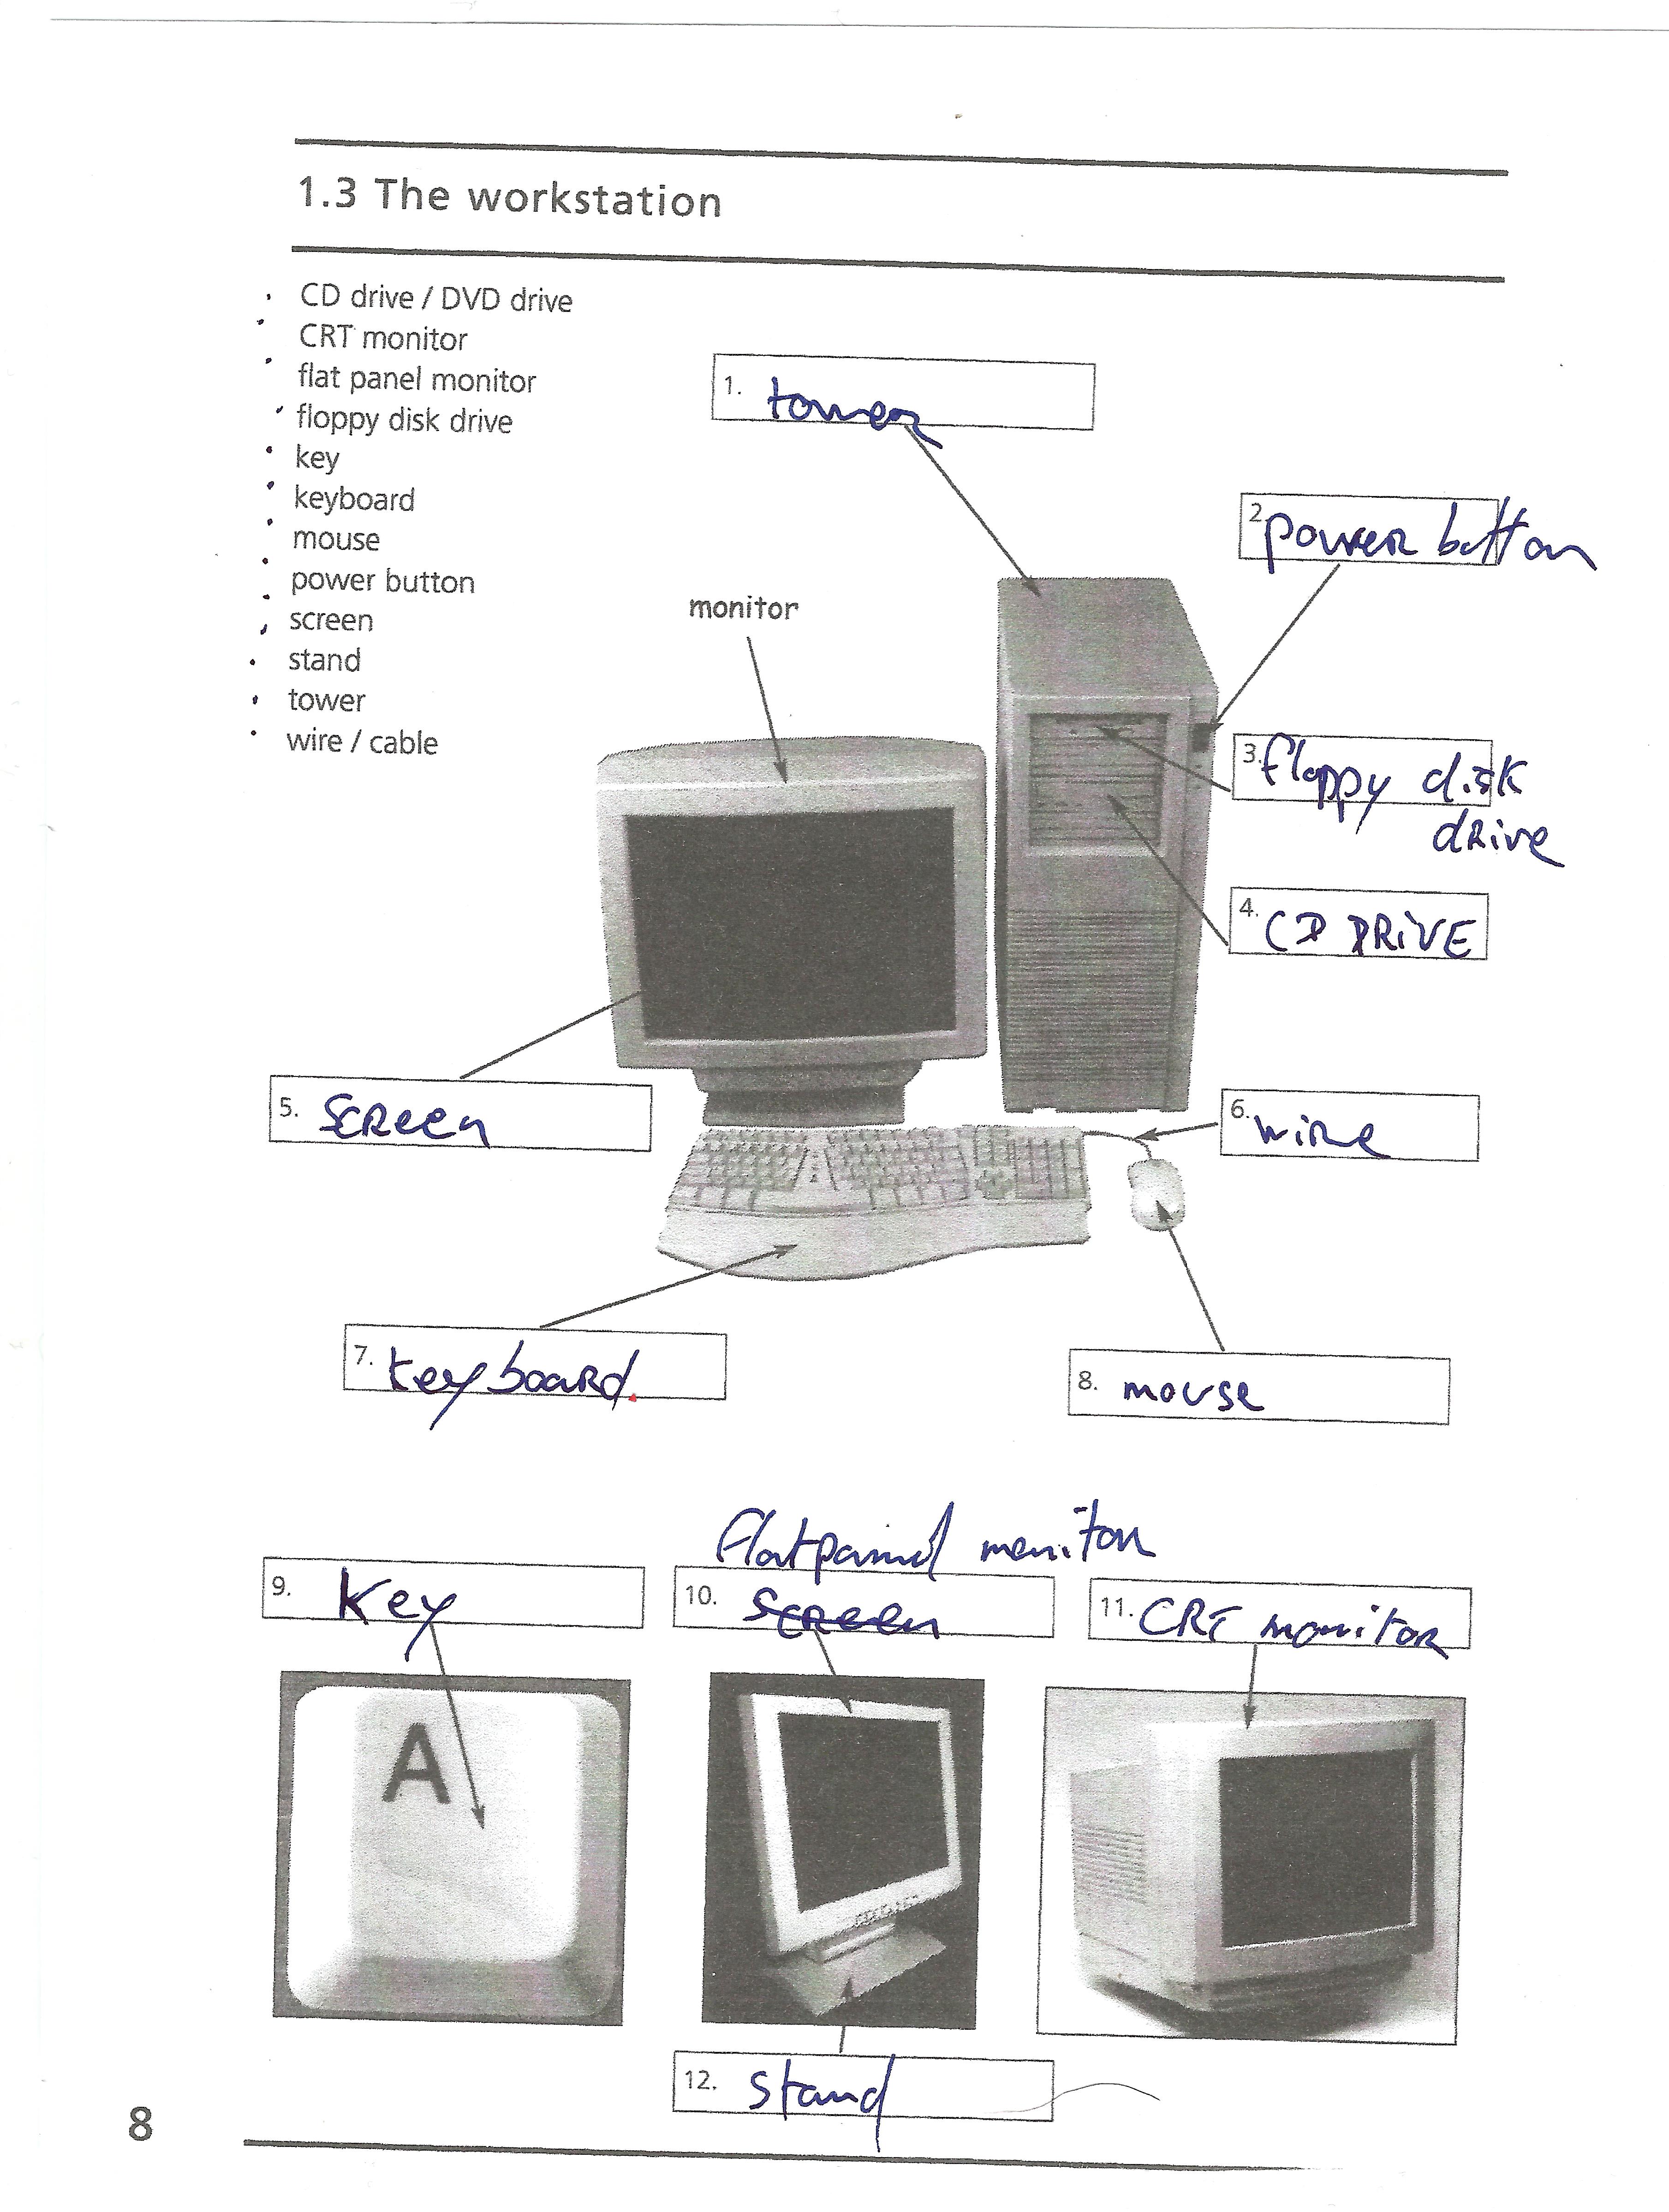 1.3 The workstation
CD drive / DVD drive
CRT monitor
flat panel monitor
floppy disk drive
key
keyboard
mouse
power button
screen
stand
tower
wire / cable
1. tower
2. power button
monitor
3. floppy disk
drive
4. CD DRIVE
5. screen
6. wire
7. keyboard.
8. mouse
Flat pannel monitor
9. Key
10. screen
11. CRT monitor
A
12. stand
8